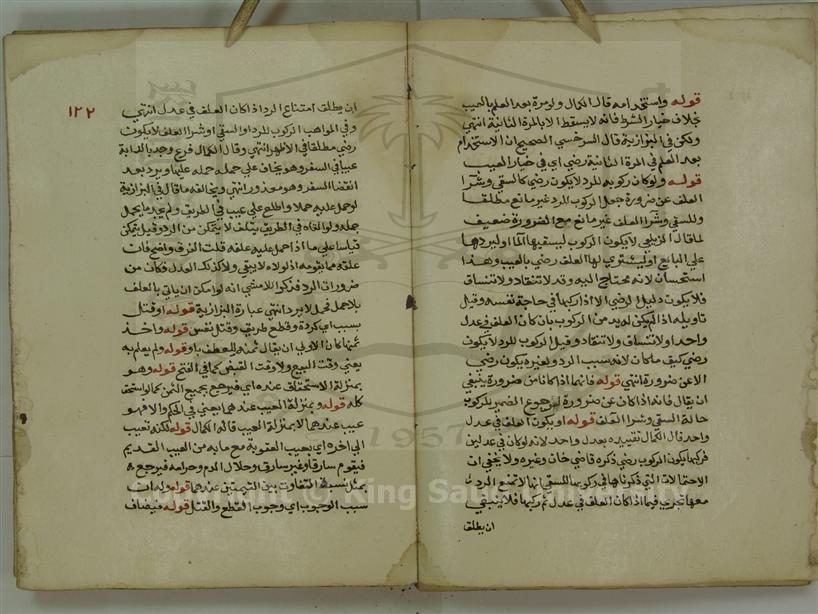 قوله واستخدامه قال الكمال ولومرة بعد العلم بالعيب
خلاف خيار الشرط فانه لا يسقط الا بالمرة الثانية انتهى
ولكن في البزازية قال السرخسي الصحيح ان الاستخدام
بعد العلم في المرة الثانية رضي اي في خيار العيب
قوله ولو كان ركوبه للرد لا يكون رضي كالسقي وشرآ
العلف عن ضرورة جعل الركوب للرد غير مانع مطلقا
وللسقي وشرآ العلف غير مانع مع الضرورة ضعيف
لما قال الزيلعي لا يكون الركوب ليسقيها الما او ليردها
علي البايع او ليشتري لها العلف رضي بالعيب وهذا
استحسان لانه محتاج اليه وقد لا تنقاد ولا تنساق
فلا يكون دليل الرضي الا اذا ركبها في حاجة نفسه وقيل
تاويله اذا لم يكن له بد من الركوب بان كان العلف في عدل
واحد او لا تنساق ولا تنقاد وقيل الركوب للرد لا يكون
رضي كيف ما كان لانه سبب الرد ولغيره يكون رضي
الا عن ضرورة انتهي قوله فانهما اذا كانا من ضرورة ينبغي
ان يقال فانه اذا كان عن ضرورة لرجوع الضمير للركوب
حالة السقي وشرا العلف قوله او يكون العلف في عدل
واحد قال الكمال تقييده بعدل واحد لانه لو كان في عدلين
فركبها يكون الركوب رضي ذكره قاضي خان وغيره ولا يخفي ان
الاحتمالات التي ذكرناها في ركوبها للسقي انها لا تمنع الرد
معها تجري فيما اذا كان العلف في عدل ثم ركبها فلا ينبغي
ان يطلق
١٢٢
ان يطلق امتناع الرد اذا كان العلف في عدل انتهي
وفي المواهب الركوب للرد او السقي او شرا العلف لا يكون
رضي مطلقا في الاظهر انتهي وقال الكمال فرع وجد بالدابة
عيبا في السفر وهو يخاف علي حمله حمله عليها ويرد بعد
انقضا السفر وهو معذور انتهي ويخالفه ما قال في البزازية
لو حمل عليه حملا واطلع علي عيب في الطريق ولم يجد ما يحمل
حمله ولو القاه في الطريق يتلف لا يتمكن من الرد وقيل يتمكن
قياسا علي ما اذا حمل عليه علفه قلت الفرق واضح فان
علفه مما يقومه اذ لولاه لا يبقي ولا كذلك العدل فكان من
ضرورات الرد
بلا حمل فحمل لا يرد انتهي عبارة البزازية قوله او قتل
بسبب اي كردة وقطع طريق وقتل نفس قوله واخذ
ثمنها كان الاولي ان يقال ثمنه للعطف باو قوله ولم يعلم به
يعني وقت البيع ولا وقت القبض كما في الفتح قوله وهو
بمنزلة الاستحقاق عنده اي فيرجع بجميع الثمن كما لو استحق
كله قوله وبمنزلة العيب عندهما يعني في الحكم والا فهو
عيب عندهما لا بمنزلة العيب قاله الكمال قوله لكنه تعيب
الي اخره اي بعيب العقوبة مع ما به من العيب القديم
فيقوم سارقا وغير سارق وحلال الدم وحرامه فيرجع
بمثل نسبة التفاوت بين القيمتين عندهما قوله وله ان
سبب الوجوب اي وجوب القطع والقتل قوله فيضاف